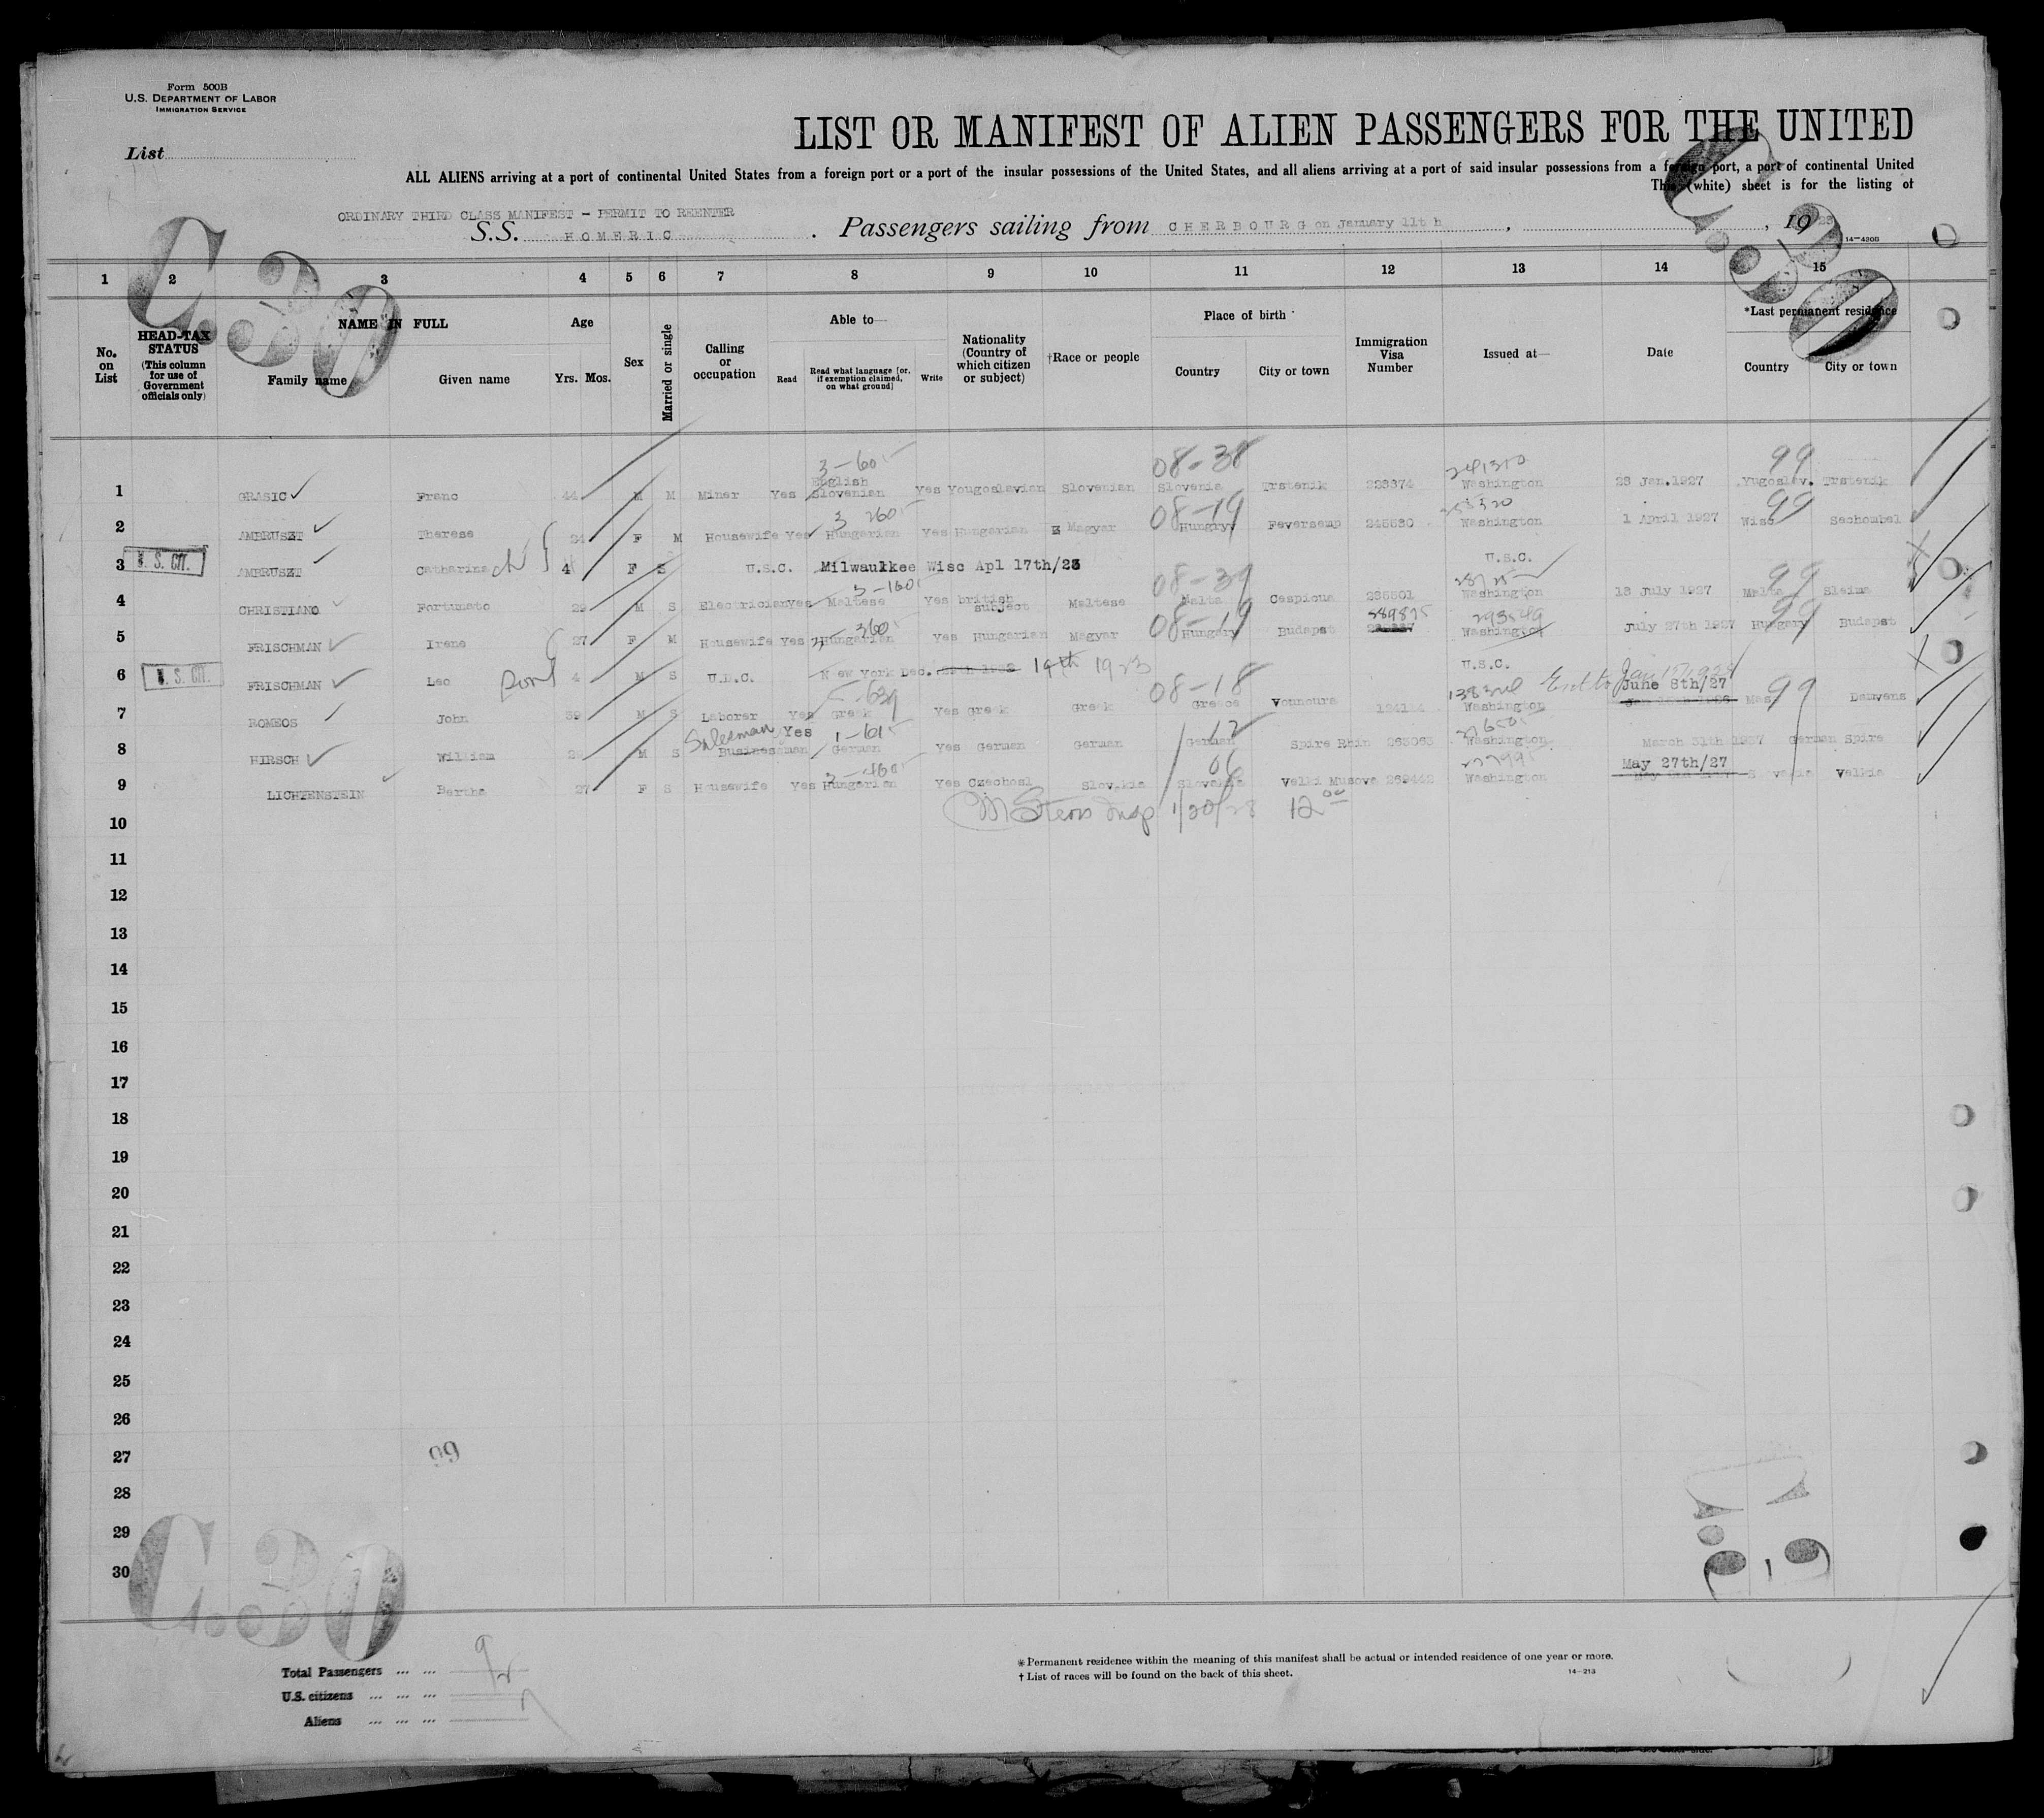 Form 500B
U.S. DEPARTMENT OF LABOR
IMMIGRATION SERVICE
List
LIST OR MANIFEST OF ALIEN PASSENGERS FOR THE UNITED
ALL ALIENS arriving at a port of continental United States from a foreign port or a port of the insular possessions of the United States, and all aliens arriving at a port of said insular possessions from a foreign port, a port of continental United
This (white) sheet is for the listing of
ORDINARY THIRD CLASS MANIFEST - PERMIT TO REENTER
S.S. HOMERIC. Passengers sailing from CHERBOURG on January 11th , 19
14-430B
C.30
1 2 3 4 5 6 7 8 9 10 11 12 13 14 15
No. on List
HEAD-TAX STATUS (This column for use of Government officials only)
NAME IN FULL
Family name Given name
Age
Yrs. Mos.
Sex
Married or single
Calling or occupation
Able to—
Read Read what language [or, if exemption claimed, on what ground] Write
Nationality (Country of which citizen or subject)
†Race or people
Place of birth
Country City or town
Immigration Visa Number
Issued at—
Date
*Last permanent residence
Country City or town
3-60 08-38 99
1 GRASIC Franc 44 M M Miner Yes English Slovenian Yes Yougoslavian Slovenian Slovenia Trstenik 223374 Washington 28 Jan.1927 Yugoslav. Trstenik
3 260 08-19 99
2 AMBRUSZT Therese 24 F M Housewife Yes Hungarian Yes Hungarian Magyar Hungary 245530 Washington 1 April 1927 Wisc
3 U. S. CIT. AMBRUSZT Catharina ch 4 F S U.S.C. Milwaulkee Wisc Apl 17th/23 U.S.C.
3-160 08-39 99
4 CHRISTIANO Fortunato M S Electrician Yes Maltese Yes british subject Maltese Malta Washington 13 July 1927 Malta Sleima
360 08-19 389875 293549 99
5 FRISCHMAN Irene 27 F M Housewife Yes Hungarian Yes Hungarian Magyar Hungary Budapst Washington July 27th 1927 Hungary Budapst
6 U. S. CIT. FRISCHMAN Leo son 4 M S New York Dec. 19th 1923 U.S.C.
08-18 June 8th/27 99
7 ROMEOS John 39 M S Laborer Yes Greek Yes Greek Greek Greece Washington Mas
Salesman Yes 1-615 12
8 HIRSCH William M S Businessman German Yes German German German Spire Rhin 265063 Washington March 31th 1927 German Spire
3-460 06 May 27th/27
9 LICHTENSTEIN Bertha 27 F S Housewife Yes Hungarian Yes Czechosl Slovakia Slovakia 269442 Washington Velkia
Insp 1/20/28 12 00
10
11
12
13
14
15
16
17
18
19
20
21
22
23
24
25
26
27
28
29
30
C.30
Total Passengers ... ... 9
U.S. citizens ... ... ...
Aliens ... ... ...
*Permanent residence within the meaning of this manifest shall be actual or intended residence of one year or more.
† List of races will be found on the back of this sheet.
14-213